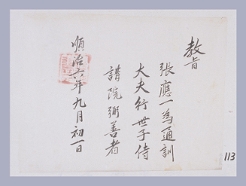 敎旨
張應一爲通訓
大夫行世子侍
講院弼善者
順治六年九月初一日
113